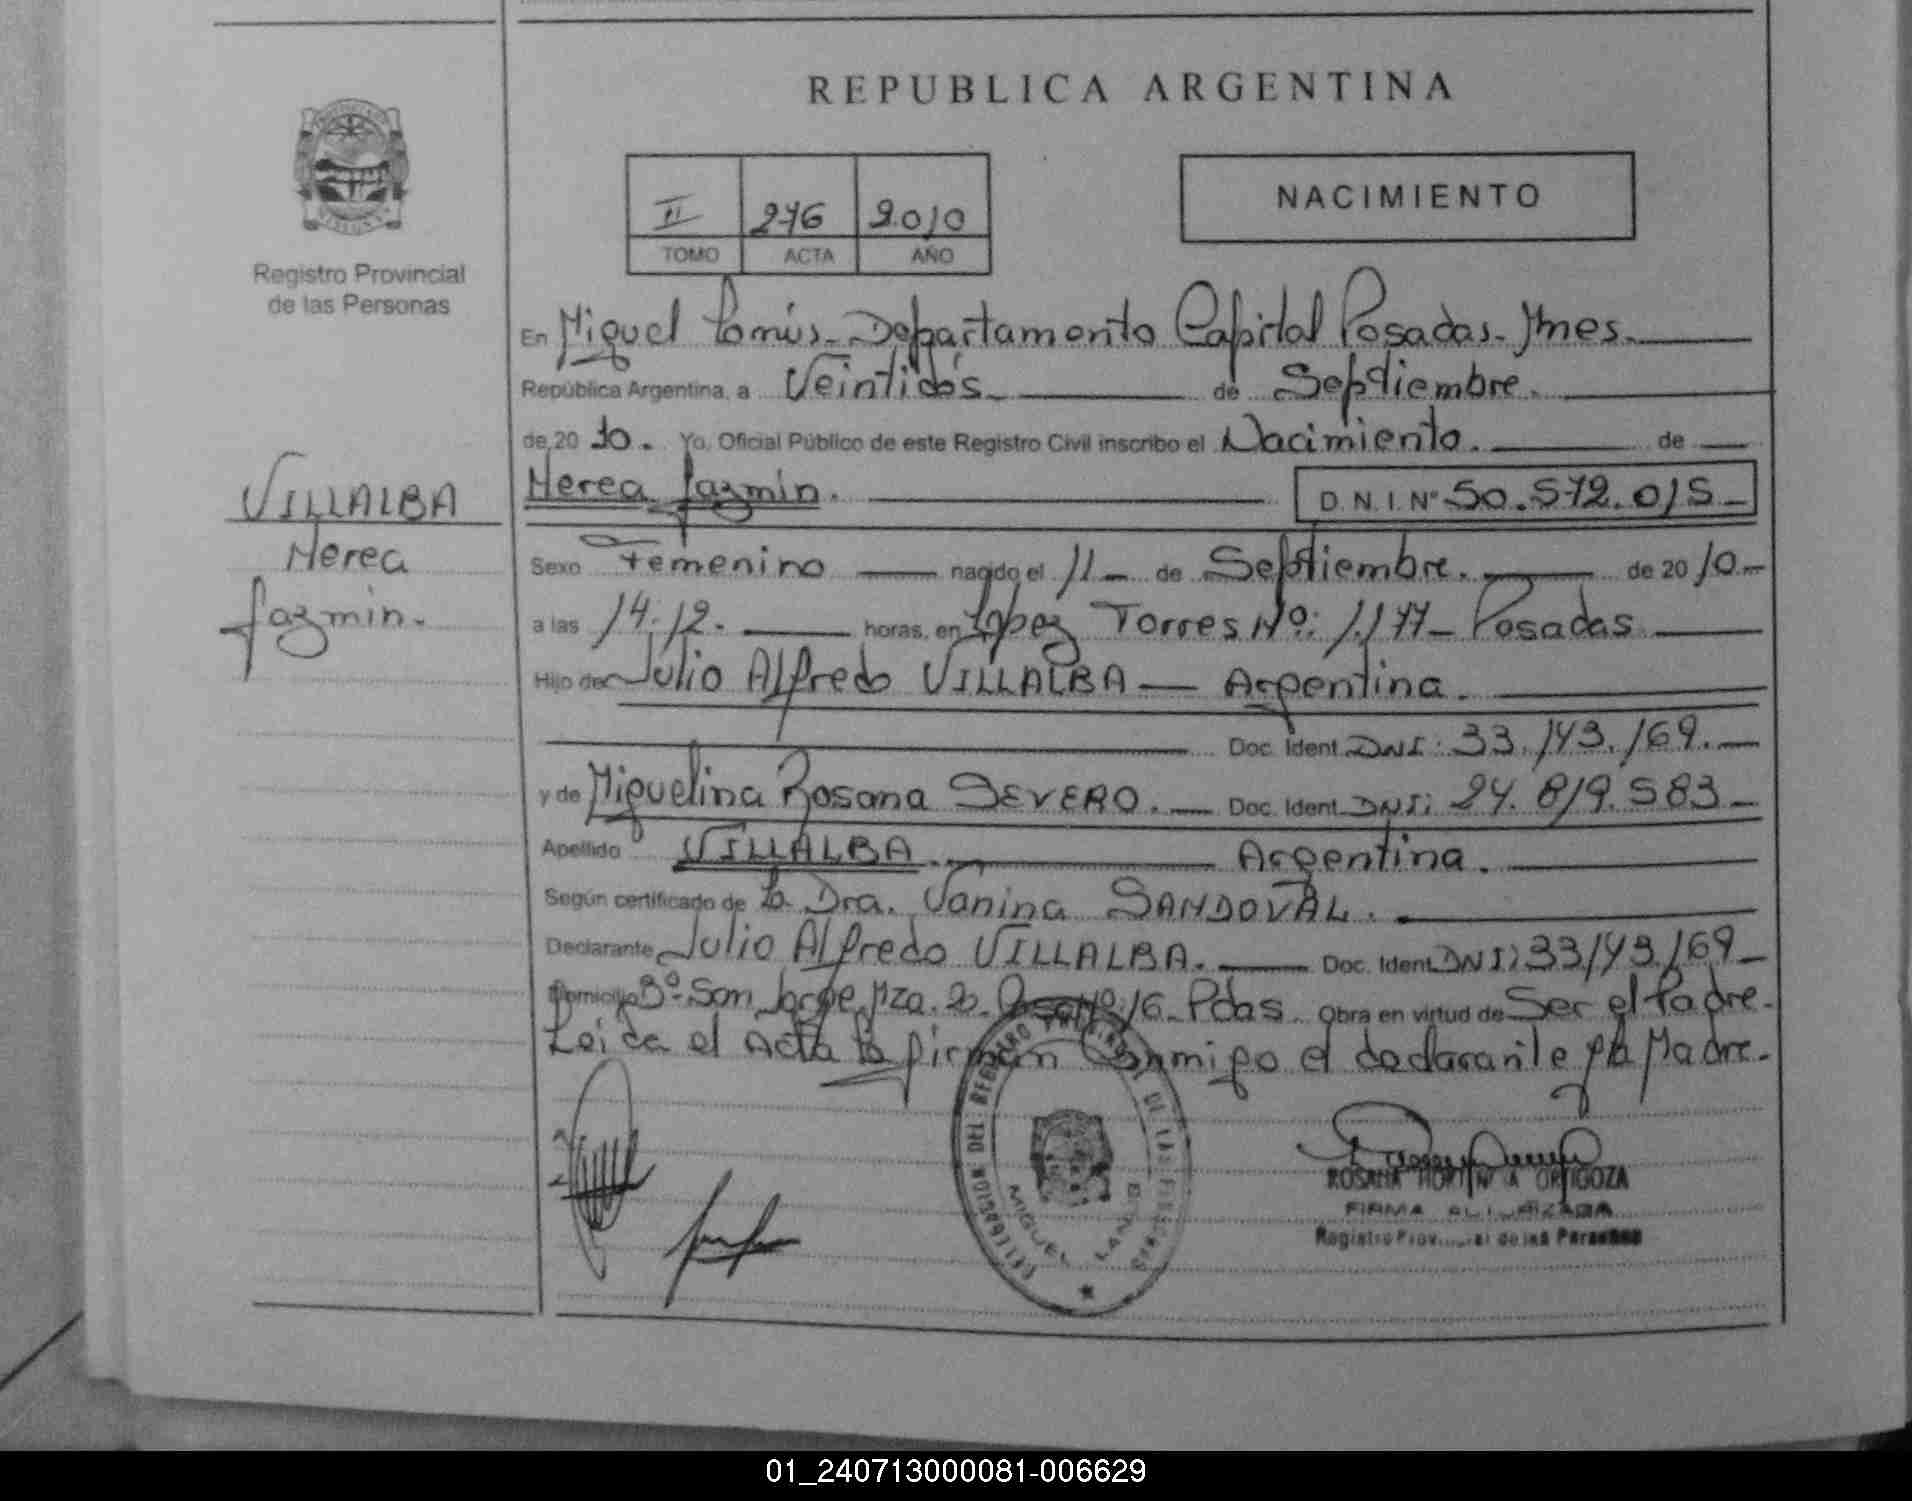 REPUBLICA ARGENTINA
NACIMIENTO
II 276 2.010
TOMO ACTA AÑO
Registro Provincial
de las Personas
En Miguel Lanús - Departamento Capital Posadas - Mnes.
República Argentina, a Veintidós de Septiembre.
de 20 10. Yo, Oficial Público de este Registro Civil inscribo el Nacimiento. de
Nerea Jazmin. D. N. I. Nº 50.572.015
VILLALBA
Nerea
Jazmin.
Sexo Femenino nacido el 11 de Septiembre. de 20 10
a las 14.12. horas, en López Torres Nº: 1.177 - Posadas
Hijo de Julio Alfredo VILLALBA - Argentina.
Doc. Ident. DNI: 33.143.169.
y de Miguelina Rosana SEVERO. Doc. Ident. DNI: 24.819.583
Apellido VILLALBA. Argentina.
Según certificado de la Dra. Vanina SANDOVAL.
Declarante Julio Alfredo VILLALBA. Doc. Ident. DNI: 33.143.169
Domicilio Bº San Jorge, Mza. 2. Casa Nº: 16 - Pdas. Obra en virtud de Ser el Padre.
Leida el Acta la firman Conmigo el declarante y la Madre.
ROSANA HORTENCIA ORTIGOZA
FIRMA AUTORIZADA
Registro Provincial de las Personas
DEL REGISTRO PROVINCIAL DE LAS PERSONAS
MIGUEL LANUS
01_240713000081-006629